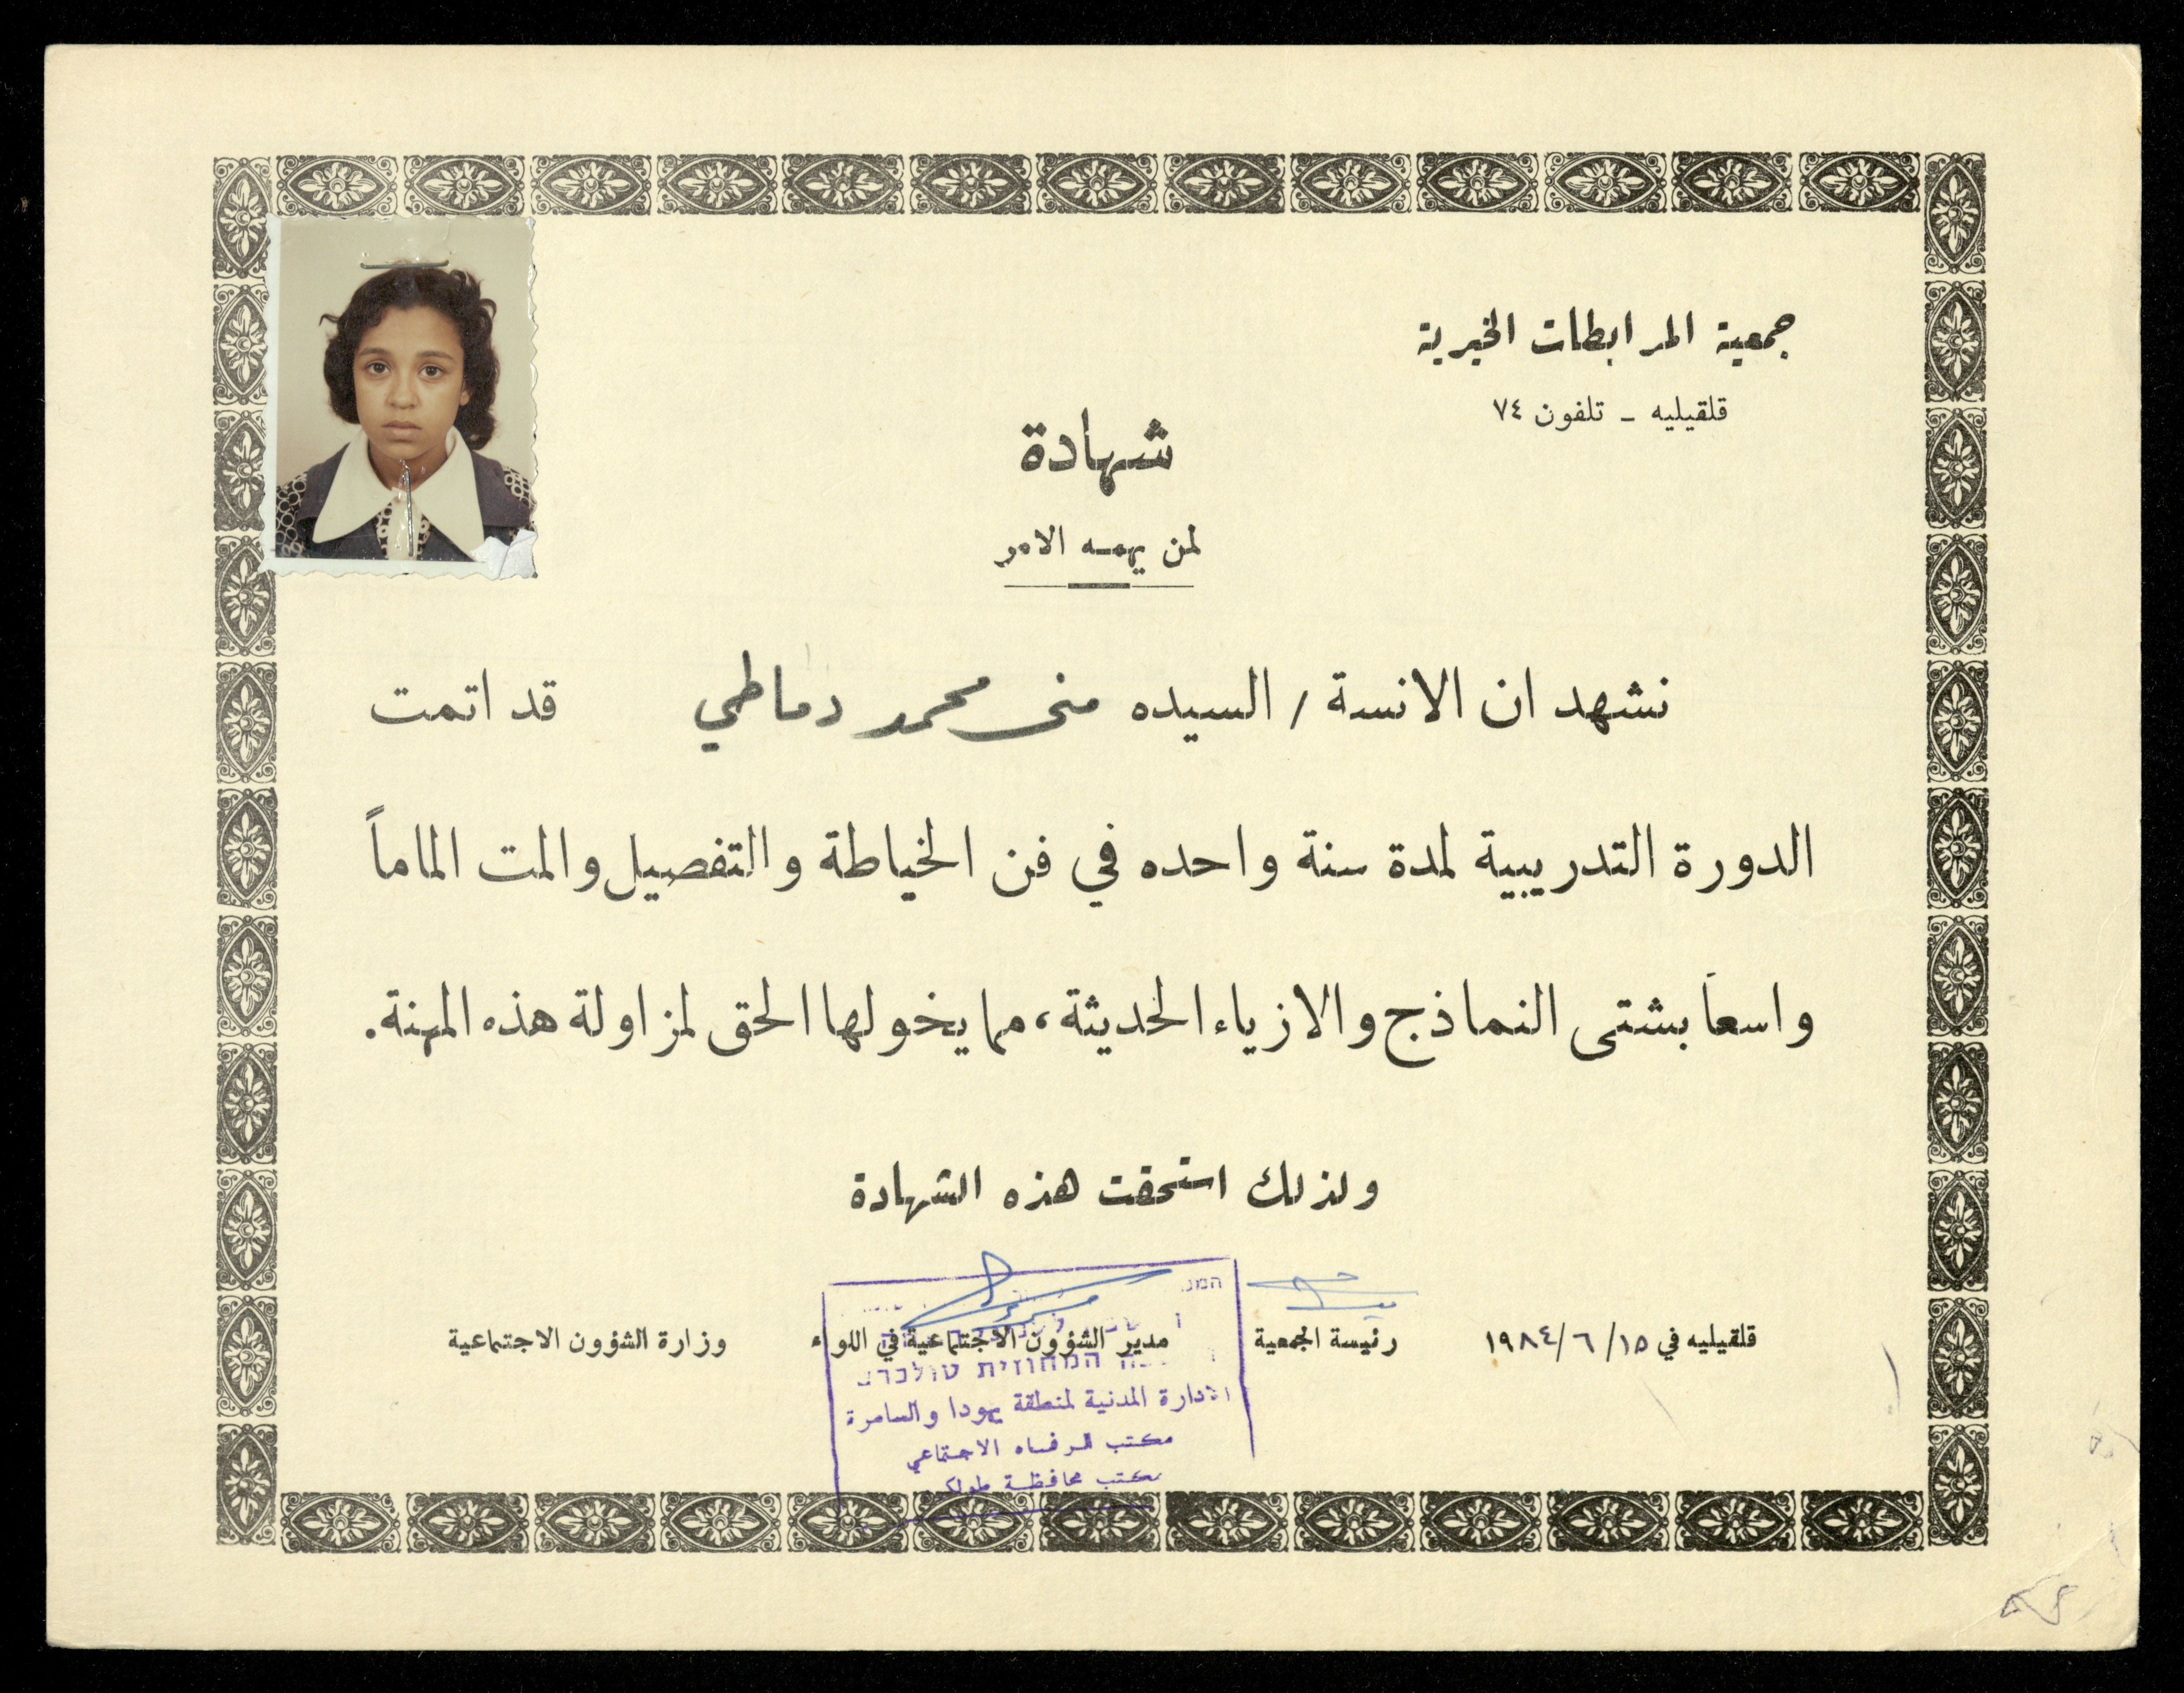 جمعية المرابطات الخيرية
قلقيليه - تلفون ٧٤
شهادة
لمن يهمه الامر
نشهد ان الانسة / السيده منى محمد دماطي قد اتمت
الدورة التدريبية لمدة سنة واحده في فن الخياطة والتفصيل والمت الماماً
واسعاً بشتى النماذج والازياء الحديثة، مما يخولها الحق لمزاولة هذه المهنة.
ولذلك استحقت هذه الشهادة
قلقيليه في ١٥/ ٦ /١٩٨٤ رئيسة الجمعية مدير الشؤون الاجتماعية في اللواء وزارة الشؤون الاجتماعية
המחוזית טולכרם
الادارة المدنية لمنطقة يهودا والسامرة
مكتب الرفاه الاجتماعي
مكتب محافظة طولكرم